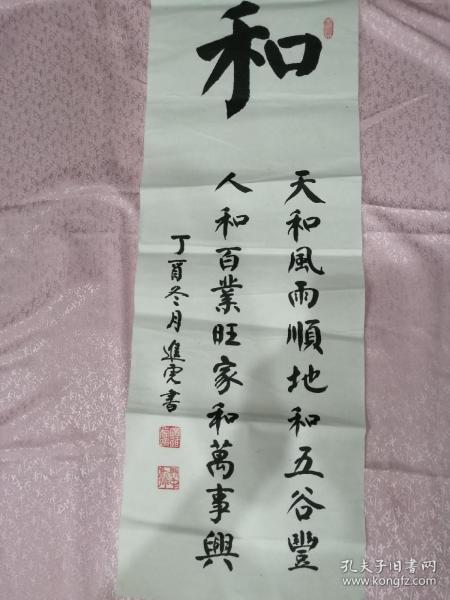 和
天和風雨順地和五谷豐
人和百業旺家和萬事興
丁酉冬月進虎書
孔夫子旧书网
www.kongfz.com